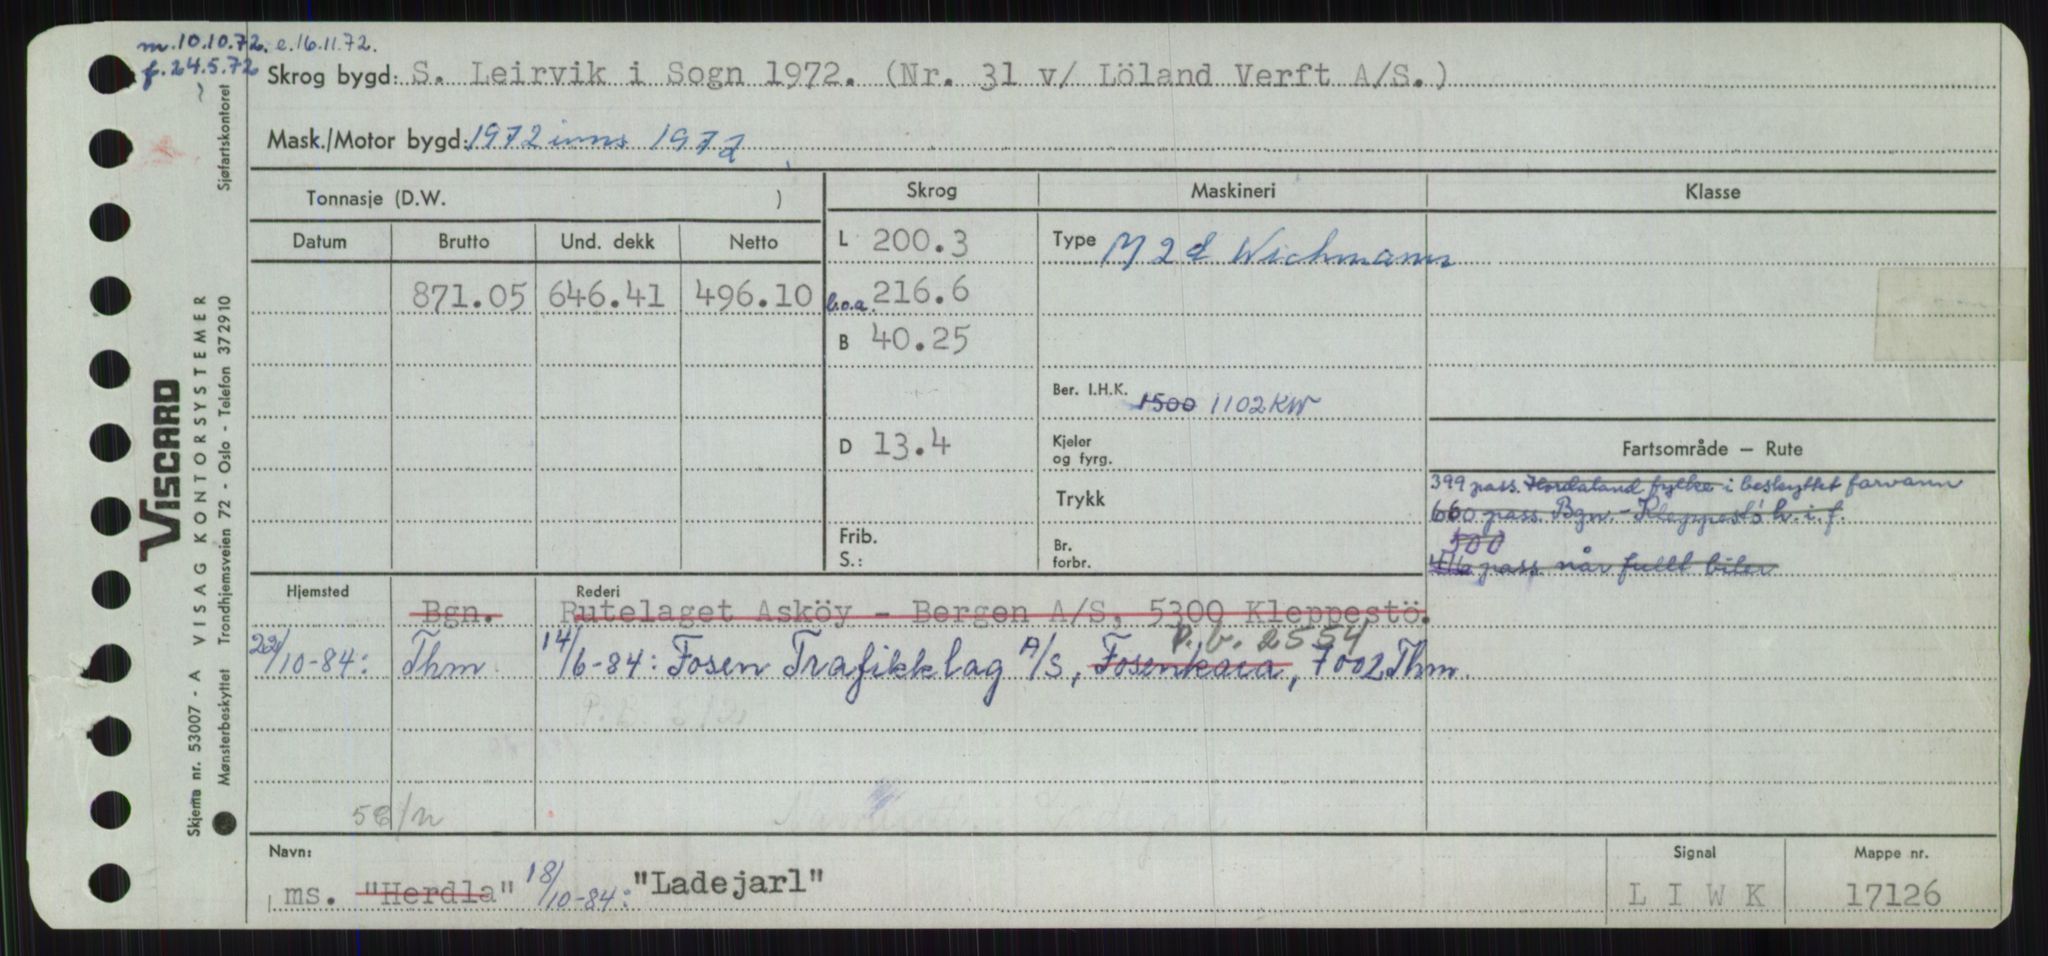 m. 10.10.72. e. 16.11.72.
f. 24.5.72
Skrog bygd: S. Leirvik i Sogn 1972. (Nr. 31 v/ Löland Verft A/S.)
Mask./Motor bygd: 1972 inns 1972
Tonnasje (D.W. )
Datum Brutto Und. dekk Netto
871.05 646.41 496.10
Skrog
L 200.3
b.o.a. 216.6
B 40.25
D 13.4
Frib.
S.:
Maskineri
Type M 2 d Wichmann
Ber. I.H.K. 1500 1102 KW
Kjeler
og fyrg.
Trykk
Br.
forbr.
Klasse
Fartsområde – Rute
399 pass. Hordaland fylke i beskyttet farvann
660 pass. Bgn. - Kleppestö h. i. f.
500
416 pass når fullt biler
Hjemsted Rederi
Bgn. Rutelaget Asköy - Bergen A/S, 5300 Kleppestö.
P.b. 2554
22/10-84: Thm 14/6-84: Fosen Trafikklag A/S, Fosenkaia, 7002 Thm.
58/n
Navn:
ms. "Herdla" 18/10-84: "Ladejarl"
Signal
L I W K
Mappe nr.
17126
Sjøfartskontoret
VISCARD
VISAG KONTORSYSTEMER
Skjema nr. 53007 - A
Mønsterbeskyttet Trondhjemsveien 72 - Oslo - Telefon 372910